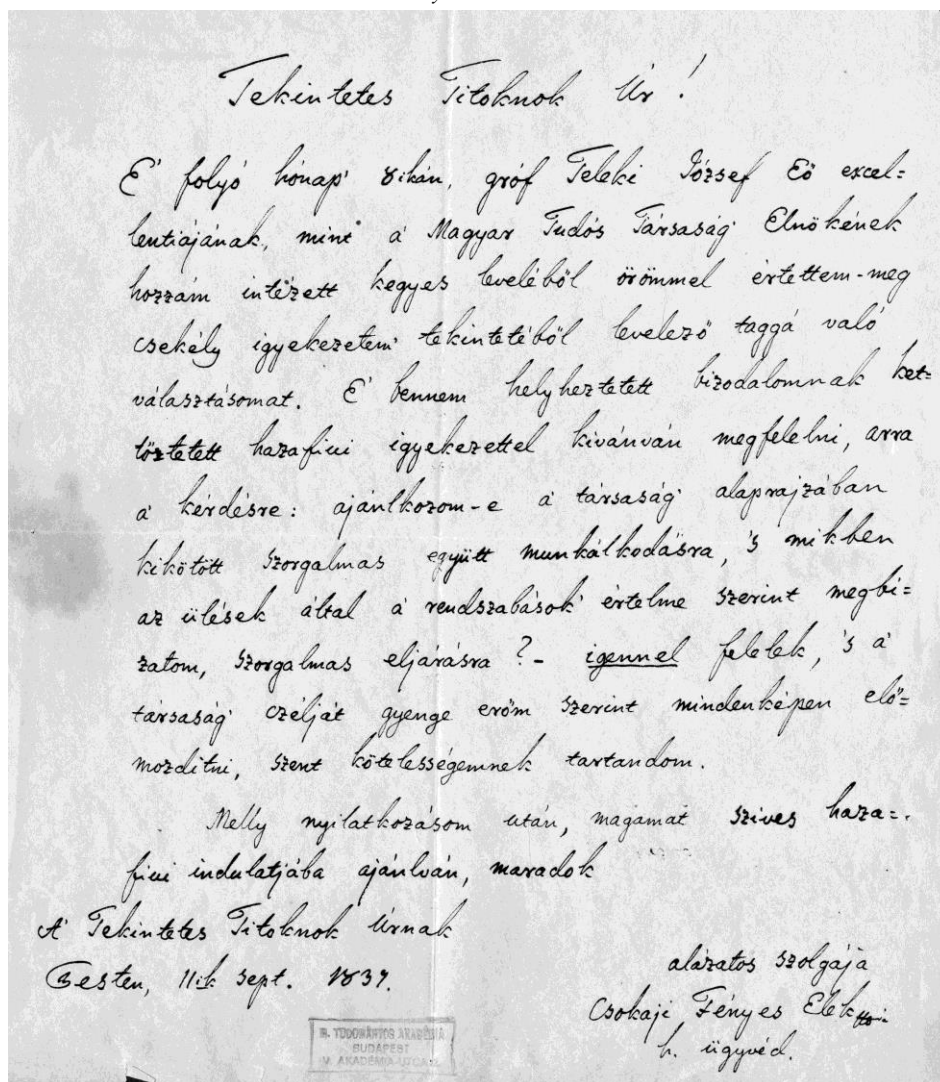 Tekintetes Titoknok Úr!
E' folyó hónap' 8ikán, gróf Teleki József Eő excel=
lentiájának, mint a' Magyar Tudós Társaság' Elnökének
hozzám intézett kegyes leveléből örömmel értettem-meg
csekély igyekezetem' tekintetéből levelező taggá való
választásomat. E' bennem helyheztetett bizodalomnak ket=
tőztetett hazafiui igyekezettel kivánván megfelelni, arra
a' kérdésre: ajánlkozom-e a' társaság' alaprajzában
kikötött szorgalmas együtt munkálkodásra, 's mikben
az ülések által a' rendszabások' értelme szerint megbi=
zatom, szorgalmas eljárásra? - igennel felelek, 's a'
társaság' czélját gyenge erőm szerint mindenképen elő=
mozdítni, szent kötelességemnek tartandom.
Melly nyilatkozásom után, magamat szives haza=
fiui indulatjába ajánlván, maradok
A' Tekintetes Titoknok Úrnak
Pesten, 11ik Sept. 1837.
alázatos szolgája
Csokaji Fényes Elek
h. ügyvéd.
M. TUDOMÁNYOS AKADÉMIA
BUDAPEST
V. AKADÉMIA-UTCA 2.